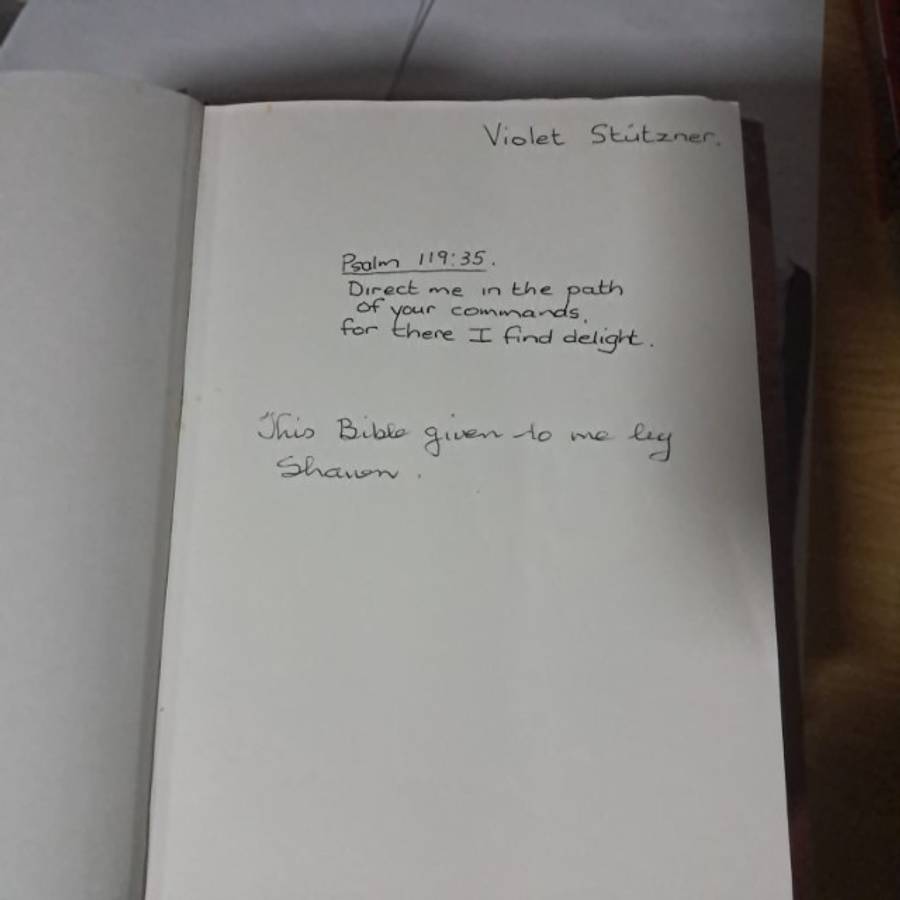 Violet Stützner.
Psalm 119:35.
Direct me in the path
of your commands,
for there I find delight.
This Bible given to me by
Shawn.